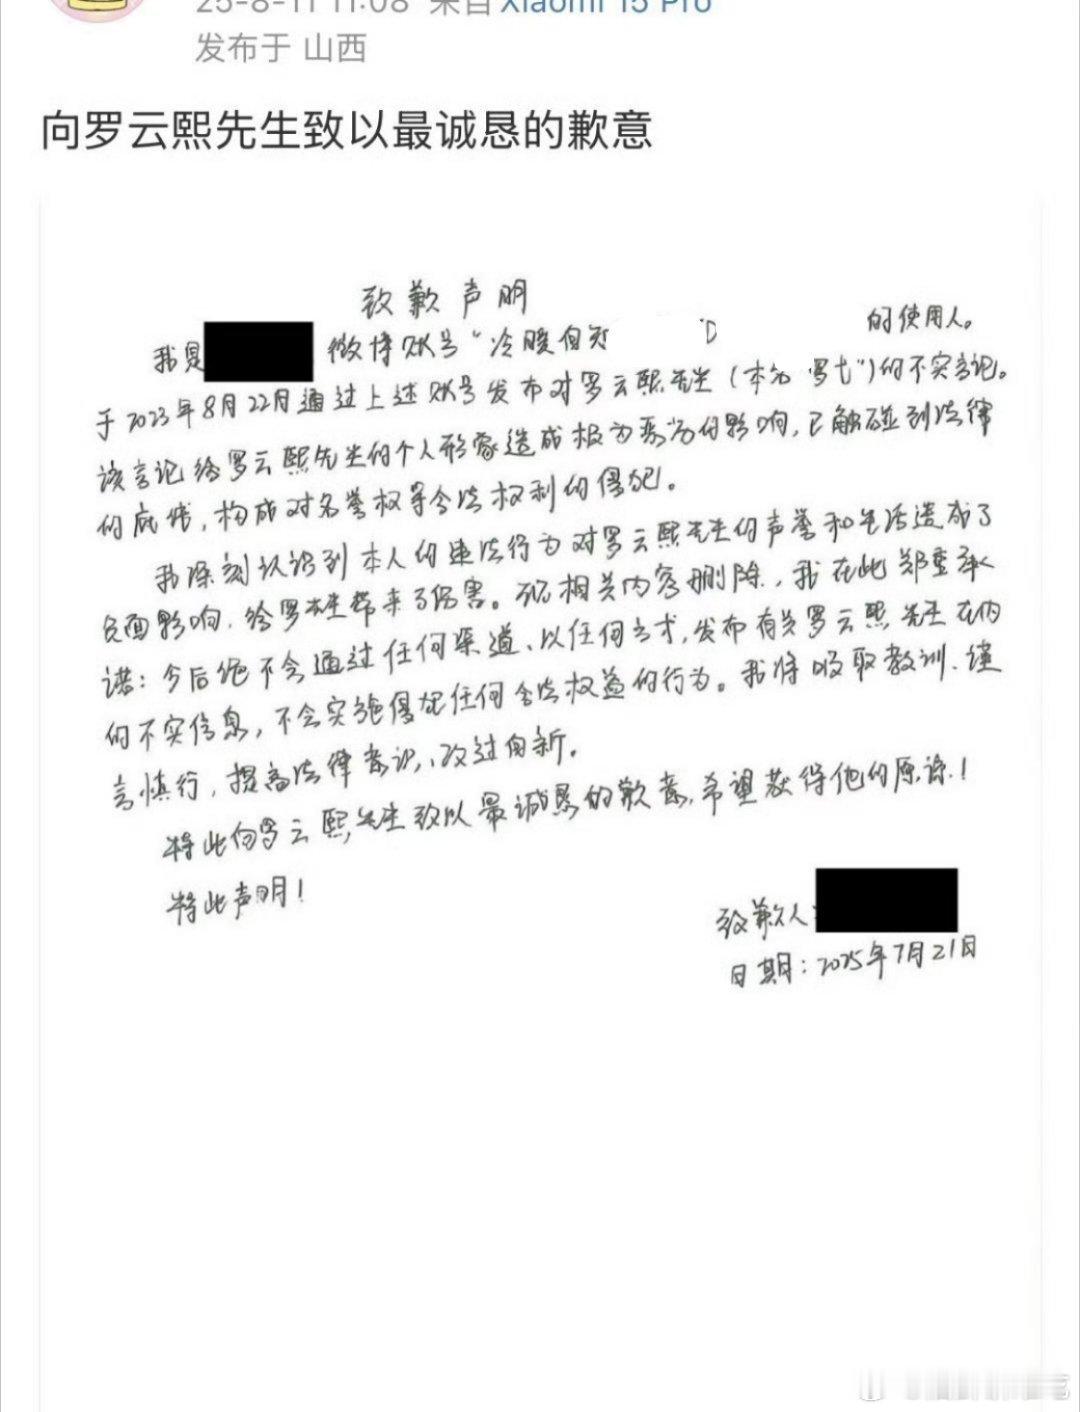 25-8-11 11:08 来自 Xiaomi 15 Pro
发布于 山西
向罗云熙先生致以最诚恳的歉意
致歉声明
我是 微博账号“冷暖自知 的使用人。
于2023年8月22月通过上述账号发布对罗云熙先生(本名 罗弋”)的不实言论。
该言论给罗云熙先生的个人形象造成极为恶劣的影响,已触碰到法律
的底线,构成对名誉权等合法权利的侵犯。
我深刻认识到本人的违法行为对罗云熙先生的声誉和生活造成了
负面影响,给罗先生带来了伤害。现相关内容删除,我在此郑重承
诺:今后绝不会通过任何渠道、以任何方式,发布有关罗云熙先生在内
的不实信息,不会实施侵犯任何合法权益的行为。我将吸取教训、谨
言慎行,提高法律意识,改过自新。
特此向罗云熙先生致以最诚恳的歉意,希望获得他的原谅!
特此声明!
致歉人:
日期:2025年7月21日